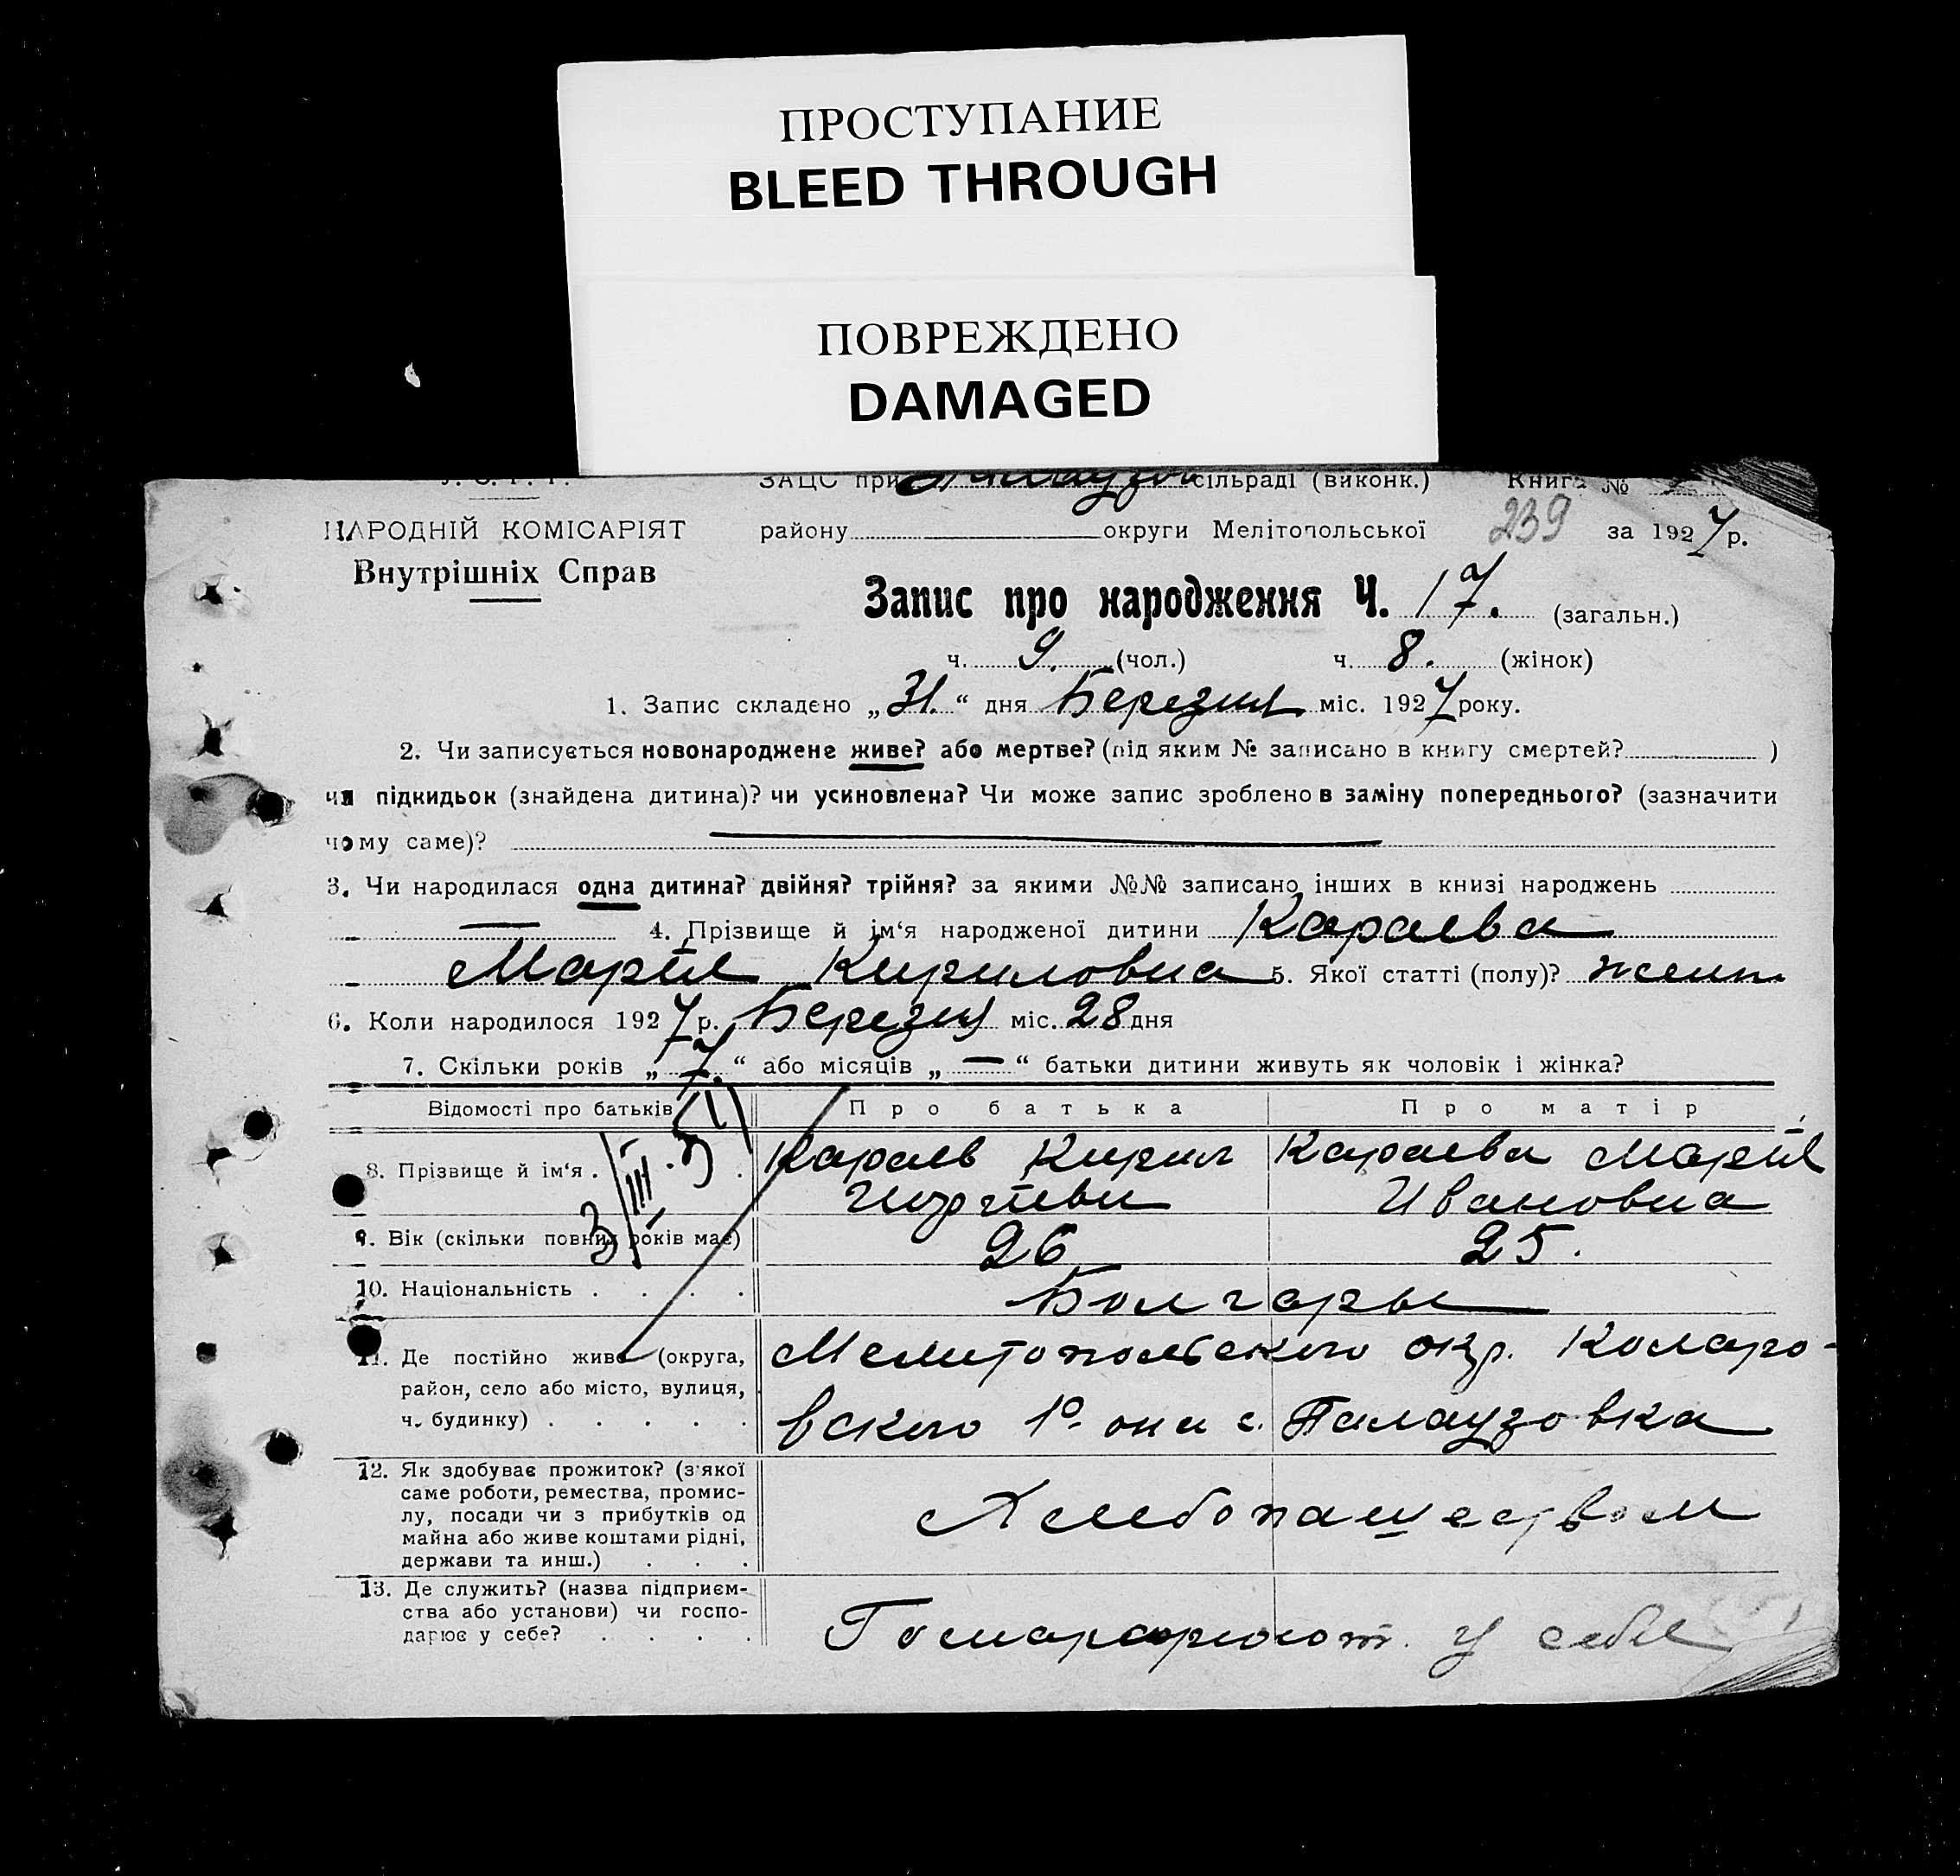 ПРОСТУПАНИЕ
BLEED THROUGH
ПОВРЕЖДЕНО
DAMAGED
У. С. Р. Р. ЗАЦС при сільраді (виконк.) Книга №
НАРОДНІЙ КОМІСАРІЯТ району округи Мелітопольської 239 за 1927 р.
Внутрішніх Справ
Запис про народження Ч. 17. (загальн.)
ч. 9. (чол.) ч. 8. (жінок)
1. Запис складено „31.“ дня Березня міс. 1927 року.
2. Чи записується новонароджене живе? або мертве? (під яким № записано в книгу смертей? )
чи підкидьок (знайдена дитина)? чи усиновлена? Чи може запис зроблено в заміну попереднього? (зазначити
чому саме)?
3. Чи народилася одна дитина? двійня? трійня? за якими №№ записано інших в книзі народжень
— 4. Прізвище й ім‘я народженої дитини Караева
Марія Кириловна 5. Якої статті (полу)? жент
6. Коли народилося 1927 р. Березня міс. 28 дня
7. Скільки років „7.“ або місяців „—“ батьки дитини живуть як чоловік і жінка?
Відомості про батьків Про батька Про матір
8. Прізвище й ім‘я . . . Караев Кирил Караева Марія
Ивановна
9. Вік (скільки повних років має) 26 25.
10. Національність . . . . Болгары
11. Де постійно живе (округа, Мелитопольского окр. Коларо-
район, село або місто, вулиця,
ч. будинку) . . . . . вского 1º. она с. Палаузовка
12. Як здобуває прожиток? (з якої
саме роботи, ремества, промис-
лу, посади чи з прибутків од Хлебопашеством
майна або живе коштами рідні,
держави та инш.) . . .
13. Де служить? (назва підприєм-
ства або установи) чи госпо-
дарює у себе? . . . . у себе